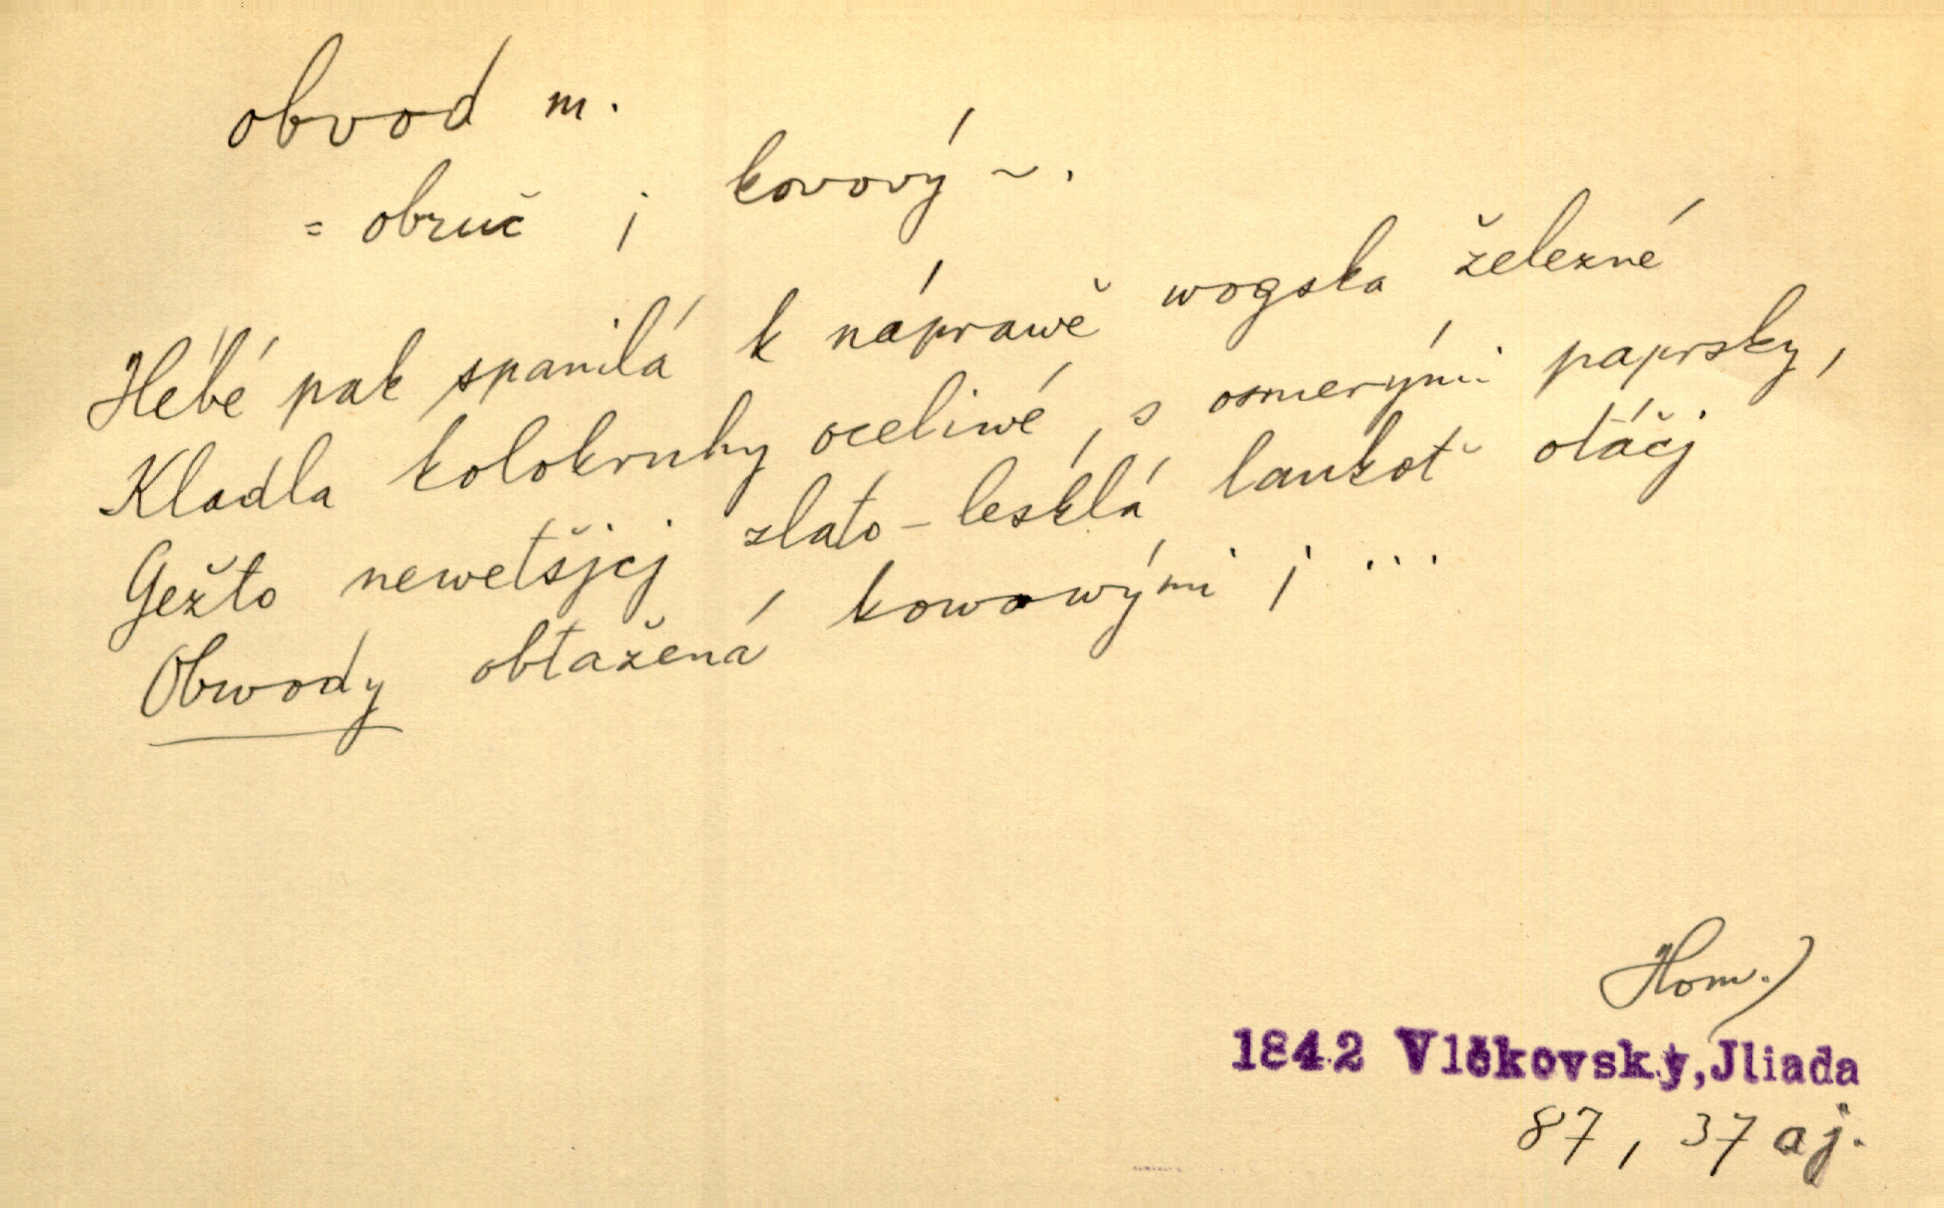 obvod m.
= obruč ; kovový ~.
Hébé pak spanilá k náprawě wogska železné
Kladla kolokruhy oceliwé, s osmerými paprsky,
Gežto newetšjcj zlato-lesklá laukoť otáčj
Obwody obtažená kowowými ; ...
Hom.)
1842 Vlčkovský, Jliada
87, 37 aj.